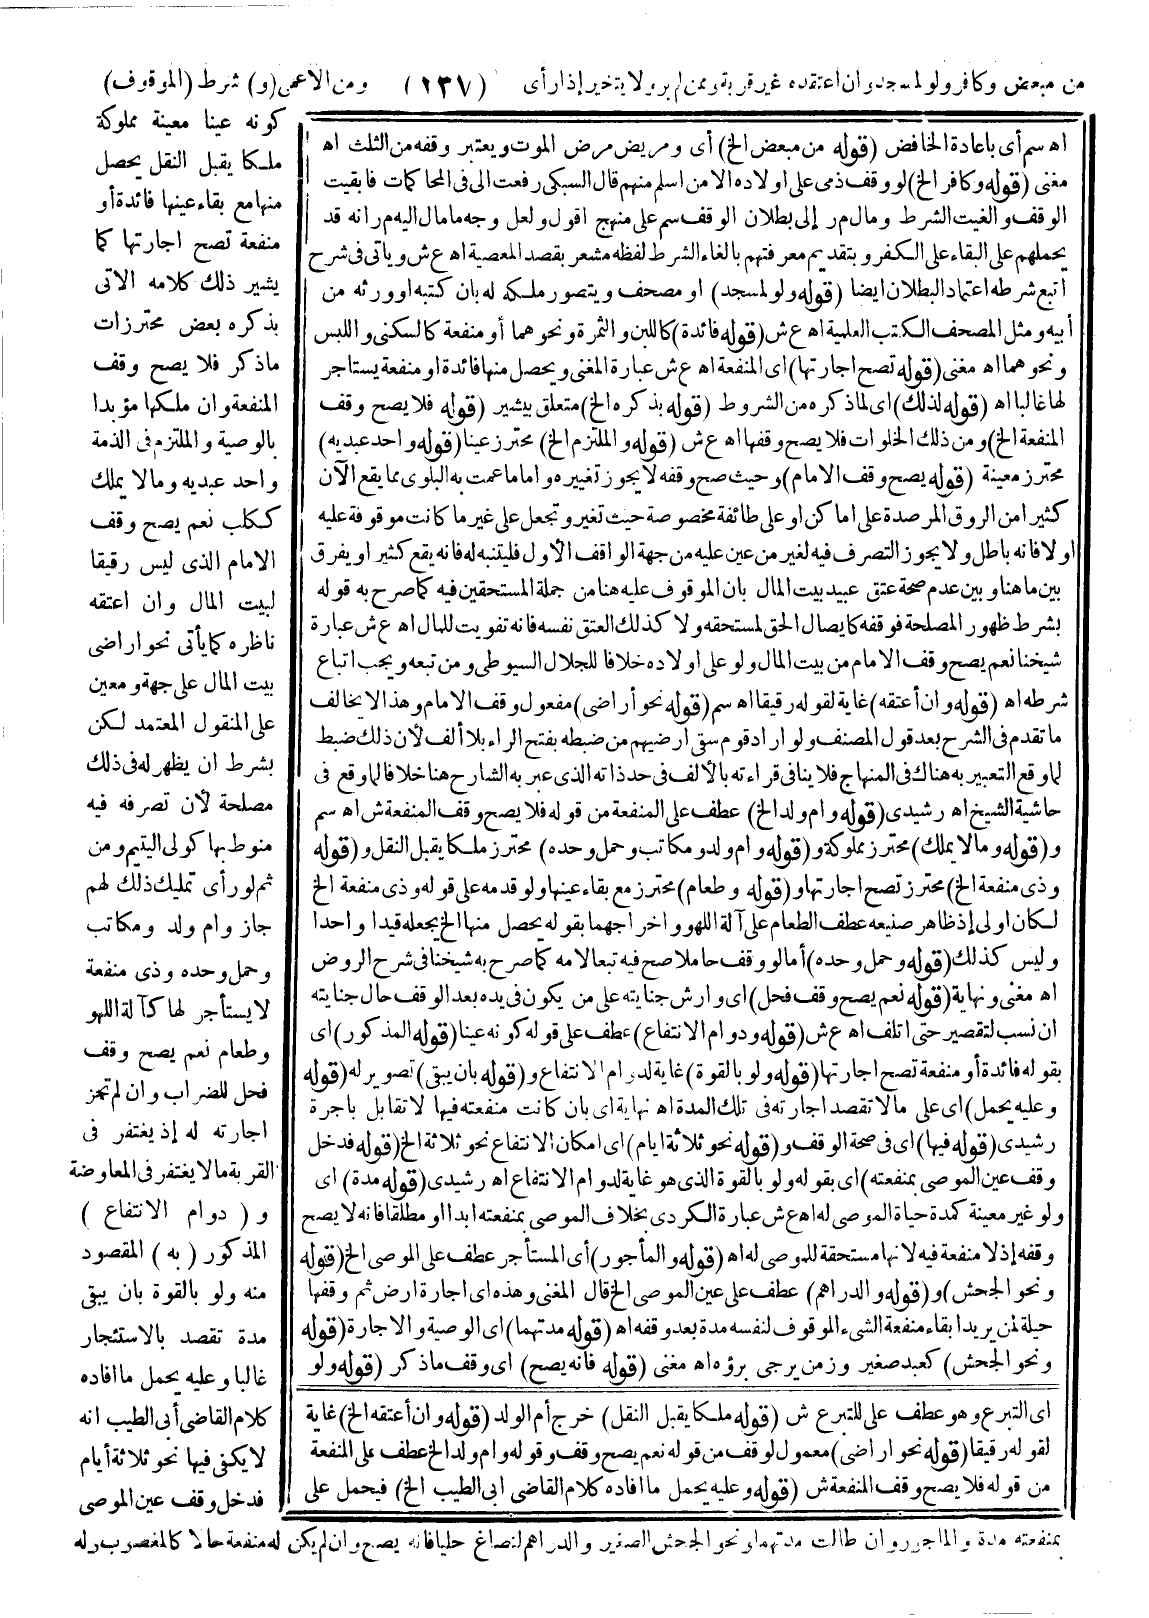 من مبعض وكافر ولو لمسجد وان اعتقده غير قربة وممن لم ير ولا يتخير إذا رأى (٢٣٧) ومن الاعمى (و) شرط (الموقوف)
كونه عينا معينة مملوكة
ملكا يقبل النقل يحصل
منها مع بقاء عينها فائدة أو
منفعة تصح اجارتها كما
يشير ذلك كلامه الاتى
بذكره بعض محترزات
ماذكر فلا يصح وقف
المنفعة وان ملكها مؤبدا
بالوصية والملتزم فى الذمة
واحد عبديه ومالا يملك
ككلب نعم يصح وقف
الامام الذى ليس رقيقا
لبيت المال وان اعتقه
ناظره كما يأتى نحو اراضى
بيت المال على جهة ومعين
على المنقول المعتمد لكن
بشرط ان يظهر له فى ذلك
مصلحة لأن تصرفه فيه
منوط بها كولى اليتيم ومن
ثم لو رأى تمليك ذلك لهم
جاز وام ولد ومكاتب
وحمل وحده وذى منفعة
لا يستأجر لها كآلة اللهو
وطعام نعم يصح وقف
فحل للضراب وان لم تجز
اجارته له إذ يغتفر فى
القربة مالا يغتفر فى المعاوضة
و (دوام الانتفاع)
المذكور (به) المقصود
منه ولو بالقوة بان يبقى
مدة تقصد بالاستئجار
غالبا وعليه يحمل ماافاده
كلام القاضى أبى الطيب انه
لا يكفى فيها نحو ثلاثة أيام
فدخل وقف عين الموصى
بمنفعته مدة والمأجور وان طالت مدتهما ونحو الجحش الصغير والدراهم لتصاغ حليا فانه يصح وان لم يكن له منفعة حالا كالمغصوب وله
اه سم أى باعادة الخافض (قوله من مبعض الخ) أى ومريض مرض الموت ويعتبر وقفه من الثلث اه
مغنى (قوله وكافر الخ) لو وقف ذمى على اولاده الا من اسلم منهم قال السبكى رفعت الى فى المحاكمات فابقيت
الوقف والغيت الشرط ومال مر إلى بطلان الوقف سم على منهج اقول ولعل وجه ما مال اليه مر انه قد
يحملهم على البقاء على الكفر وبتقديم معرفتهم بالغاء الشرط لفظه مشعر بقصد المعصية اه ع ش ويأتى فى شرح
اتبع شرطه اعتماد البطلان ايضا (قوله ولو لمسجد) او مصحف ويتصور ملكه له بان كتبه او ورثه من
أبيه ومثل المصحف الكتب العلمية اه ع ش (قوله فائدة) كاللبن والثمرة ونحوهما أو منفعة كالسكنى واللبس
ونحوهما اه مغنى (قوله تصح اجارتها) اى المنفعة اه ع ش عبارة المغنى ويحصل منها فائدة او منفعة يستاجر
لها غالبا اه (قوله لذلك) اى لما ذكره من الشروط (قوله بذكره الخ) متعلق بيشير (قوله فلا يصح وقف
المنفعة الخ) ومن ذلك الخلوات فلا يصح وقفها اه ع ش (قوله والملتزم الخ) محترز عينا (قوله واحد عبديه)
محترز معينة (قوله يصح وقف الامام) وحيث صح وقفه لا يجوز تغييره واما ما عمت به البلوى مما يقع الآن
كثيرا من الرزق المرصدة على اماكن او على طائفة مخصوصة حيث تغير وتجعل على غير ما كانت موقوفة عليه
اولا فانه باطل ولا يجوز التصرف فيه لغير من عين عليه من جهة الواقف الأول فليتنبه له فانه يقع كثيرا ويفرق
بين ما هنا وبين عدم صحة عتق عبيد بيت المال بان الموقوف عليه هنا من جملة المستحقين فيه كما صرح به قوله
بشرط ظهور المصلحة فوقفه كايصال الحق لمستحقه ولا كذلك العتق نفسه فانه تفويت للمال اه ع ش عبارة
شيخنا نعم يصح وقف الامام من بيت المال ولو على اولاده خلافا للجلال السيوطى ومن تبعه ويجب اتباع
شرطه اه (قوله وان أعتقه) غاية لقوله رقيقا اه سم (قوله نحو أراضى) مفعول وقف الامام وهذا لا يخالف
ما تقدم فى الشرح بعد قول المصنف ولو اراد قوم سقى ارضيهم من ضبطه بفتح الراء بلا ألف لأن ذلك ضبط
لما وقع التعبير به هناك فى المنهاج فلا ينافى قراءته بالألف فى حد ذاته الذى عبر به الشارح هنا خلافا لما وقع فى
حاشية الشيخ اه رشيدى (قوله وام ولد الخ) عطف على المنفعة من قوله فلا يصح وقف المنفعة ش اه سم
و(قوله ومالا يملك) محترز مملوكة و(قوله وام ولد ومكاتب وحمل وحده) محترز ملكا يقبل النقل و(قوله
وذى منفعة الخ) محترز تصح اجارتها و(قوله وطعام) محترز مع بقاء عينها ولو قدمه على قوله وذى منفعة الخ
لكان اولى إذ ظاهر صنيعه عطف الطعام على آلة اللهو واخراجهما بقوله يحصل منها الخ يجعله قيدا واحدا
وليس كذلك (قوله وحمل وحده) أما لو وقف حاملا صح فيه تبعا لامه كما صرح به شيخنا فى شرح الروض
اه مغنى ونهاية (قوله نعم يصح وقف فحل) اى وارش جنايته على من يكون فى يده بعد الوقف حال جنايته
ان نسب لتقصير حتى اتلف اه ع ش (قوله ودوام الانتفاع) عطف على قوله كونه عينا (قوله المذكور) اى
بقوله فائدة أو منفعة تصح اجارتها (قوله ولو بالقوة) غاية لدوام الانتفاع و(قوله بان يبقى) تصوير له (قوله
وعليه يحمل) اى على مالا تقصد اجارته فى تلك المدة اه نهاية اى بان كانت منفعته فيها لا تقابل باجرة
رشيدى (قوله فيها) اى فى صحة الوقف و(قوله نحو ثلاثة ايام) اى امكان الانتفاع نحو ثلاثة الخ (قوله فدخل
وقف عين الموصى بمنفعته) اى بقوله ولو بالقوة الذى هو غاية لدوام الانتفاع اه رشيدى (قوله مدة) اى
ولو غير معينة كمدة حياة الموصى له اه ع ش عبارة الكردى بخلاف الموصى بمنفعته ابدا او مطلقا فانه لا يصح
وقفه إذ لا منفعة فيه لانها مستحقة للموصى له اه (قوله والمأجور) أى المستأجر عطف على الموصى الخ (قوله
ونحو الجحش) و(قوله والدراهم) عطف على عين الموصى الخ قال المغنى وهذه اى اجارة ارض ثم وقفها
حيلة لمن يريد ابقاء منفعة الشىء الموقوف لنفسه مدة بعد وقفه اه (قوله مدتهما) اى الوصية والاجارة (قوله
ونحو الجحش) كعبد صغير وزمن يرجى برؤه اه مغنى (قوله فانه يصح) اى وقف ماذكر (قوله ولو
اى التبرع وهو عطف على للتبرع ش (قوله ملكا يقبل النقل) خرج أم الولد (قوله وان أعتقه الخ) غاية
لقوله رقيقا (قوله نحو اراضى) معمول لوقف من قوله نعم يصح وقف وقوله وام ولد الخ عطف على المنفعة
من قوله فلا يصح وقف المنفعة ش (قوله وعليه يحمل ماافاده كلام القاضى ابى الطيب الخ) فيحمل على